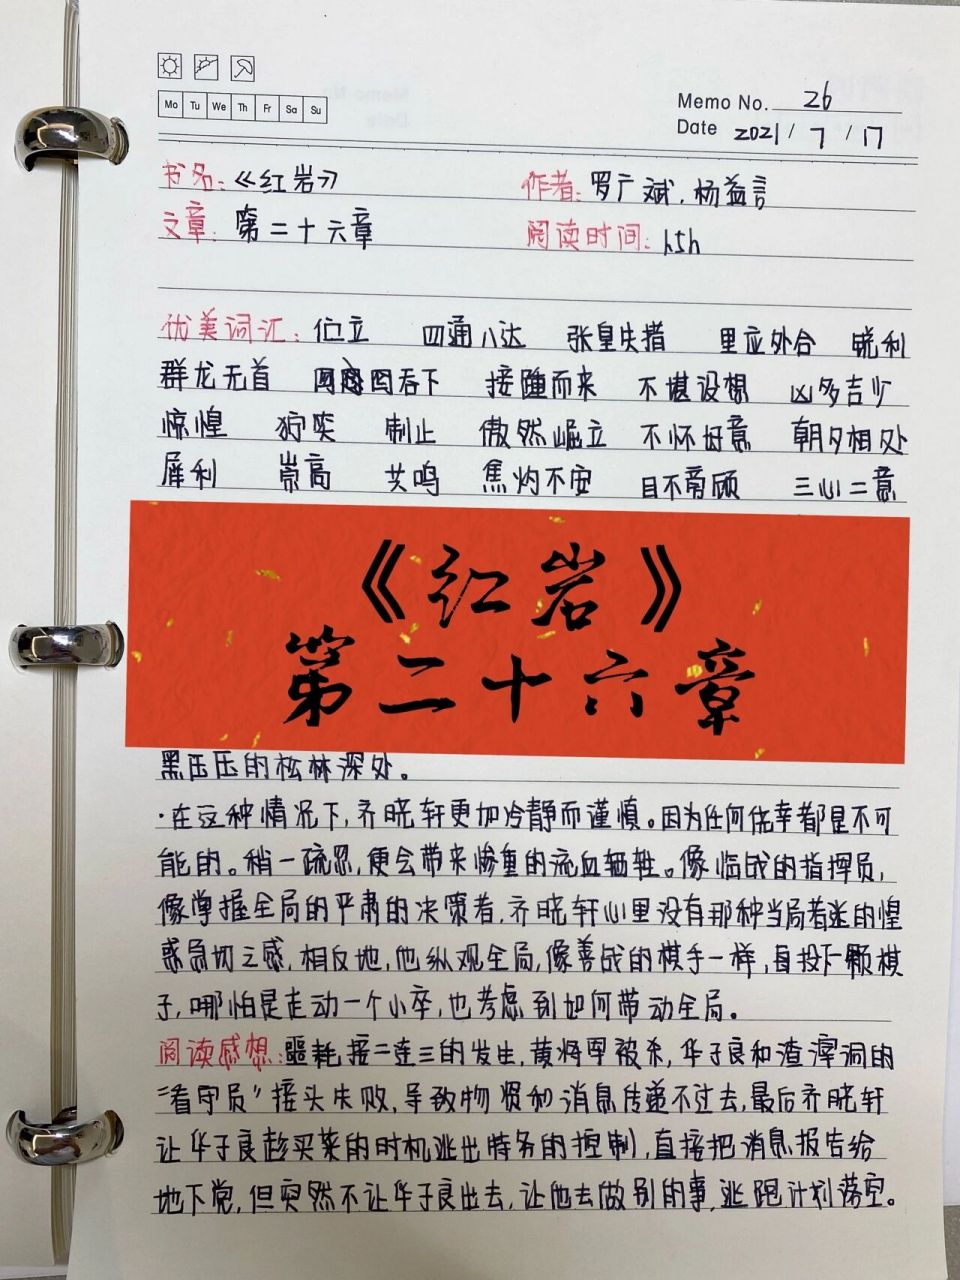 Mo Tu We Th Fr Sa Su
Memo No. 26
Date 2021 / 7 / 17
书名:《红岩》 作者:罗广斌.杨益言
文章:第二十六章 阅读时间:1.5h
优美词汇:伫立 四通八达 张皇失措 里应外合 锐利
群龙无首 囫囵吞下 接踵而来 不堪设想 凶多吉少
惊惶 狞笑 制止 傲然崛立 不怀好意 朝夕相处
犀利 崇高 共鸣 焦灼不安 目不旁顾 三心二意
《红岩》
第二十六章
黑压压的松林深处。
·在这种情况下,齐晓轩更加冷静而谨慎。因为任何侥幸都是不可
能的。稍一疏忽,便会带来惨重的流血牺牲。像临战的指挥员,
像掌握全局的严肃的决策者,齐晓轩心里没有那种当局者迷的惶
惑急切之感,相反地,他纵观全局,像善战的棋手一样,每投下一颗棋
子,哪怕是走动一个小卒,也考虑到如何带动全局。
阅读感想:噩耗接二连三的发生,黄将军被杀,华子良和渣滓洞的
“看守员”接头失败,导致物资和消息传递不过去,最后齐晓轩
让华子良趁买菜的时机逃出特务的控制,直接把消息报告给
地下党,但突然不让华子良出去,让他去做别的事,逃跑计划落空。